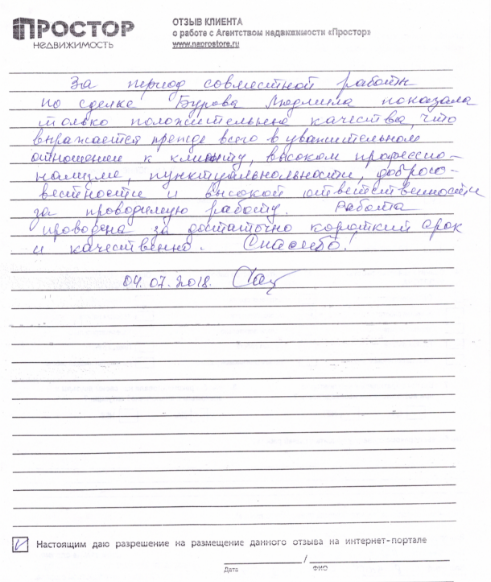 ПРОСТОР
НЕДВИЖИМОСТЬ
ОТЗЫВ КЛИЕНТА
о работе с Агентством недвижимости «Простор»
www.naprostore.ru
За период совместной работы
по сделке Бурова Людмила показала
только положительные качества, что
выражается прежде всего в уважительном
отношении к клиенту, высоком профессио-
нализме, пунктуальности, добросо-
вестности и высокой ответственности
за проводимую работу. Работа
проведена за достаточно короткий срок
и качественно. Спасибо!
04.07.2018.
Настоящим даю разрешение на размещение данного отзыва на интернет-портале
/
Дата ФИО